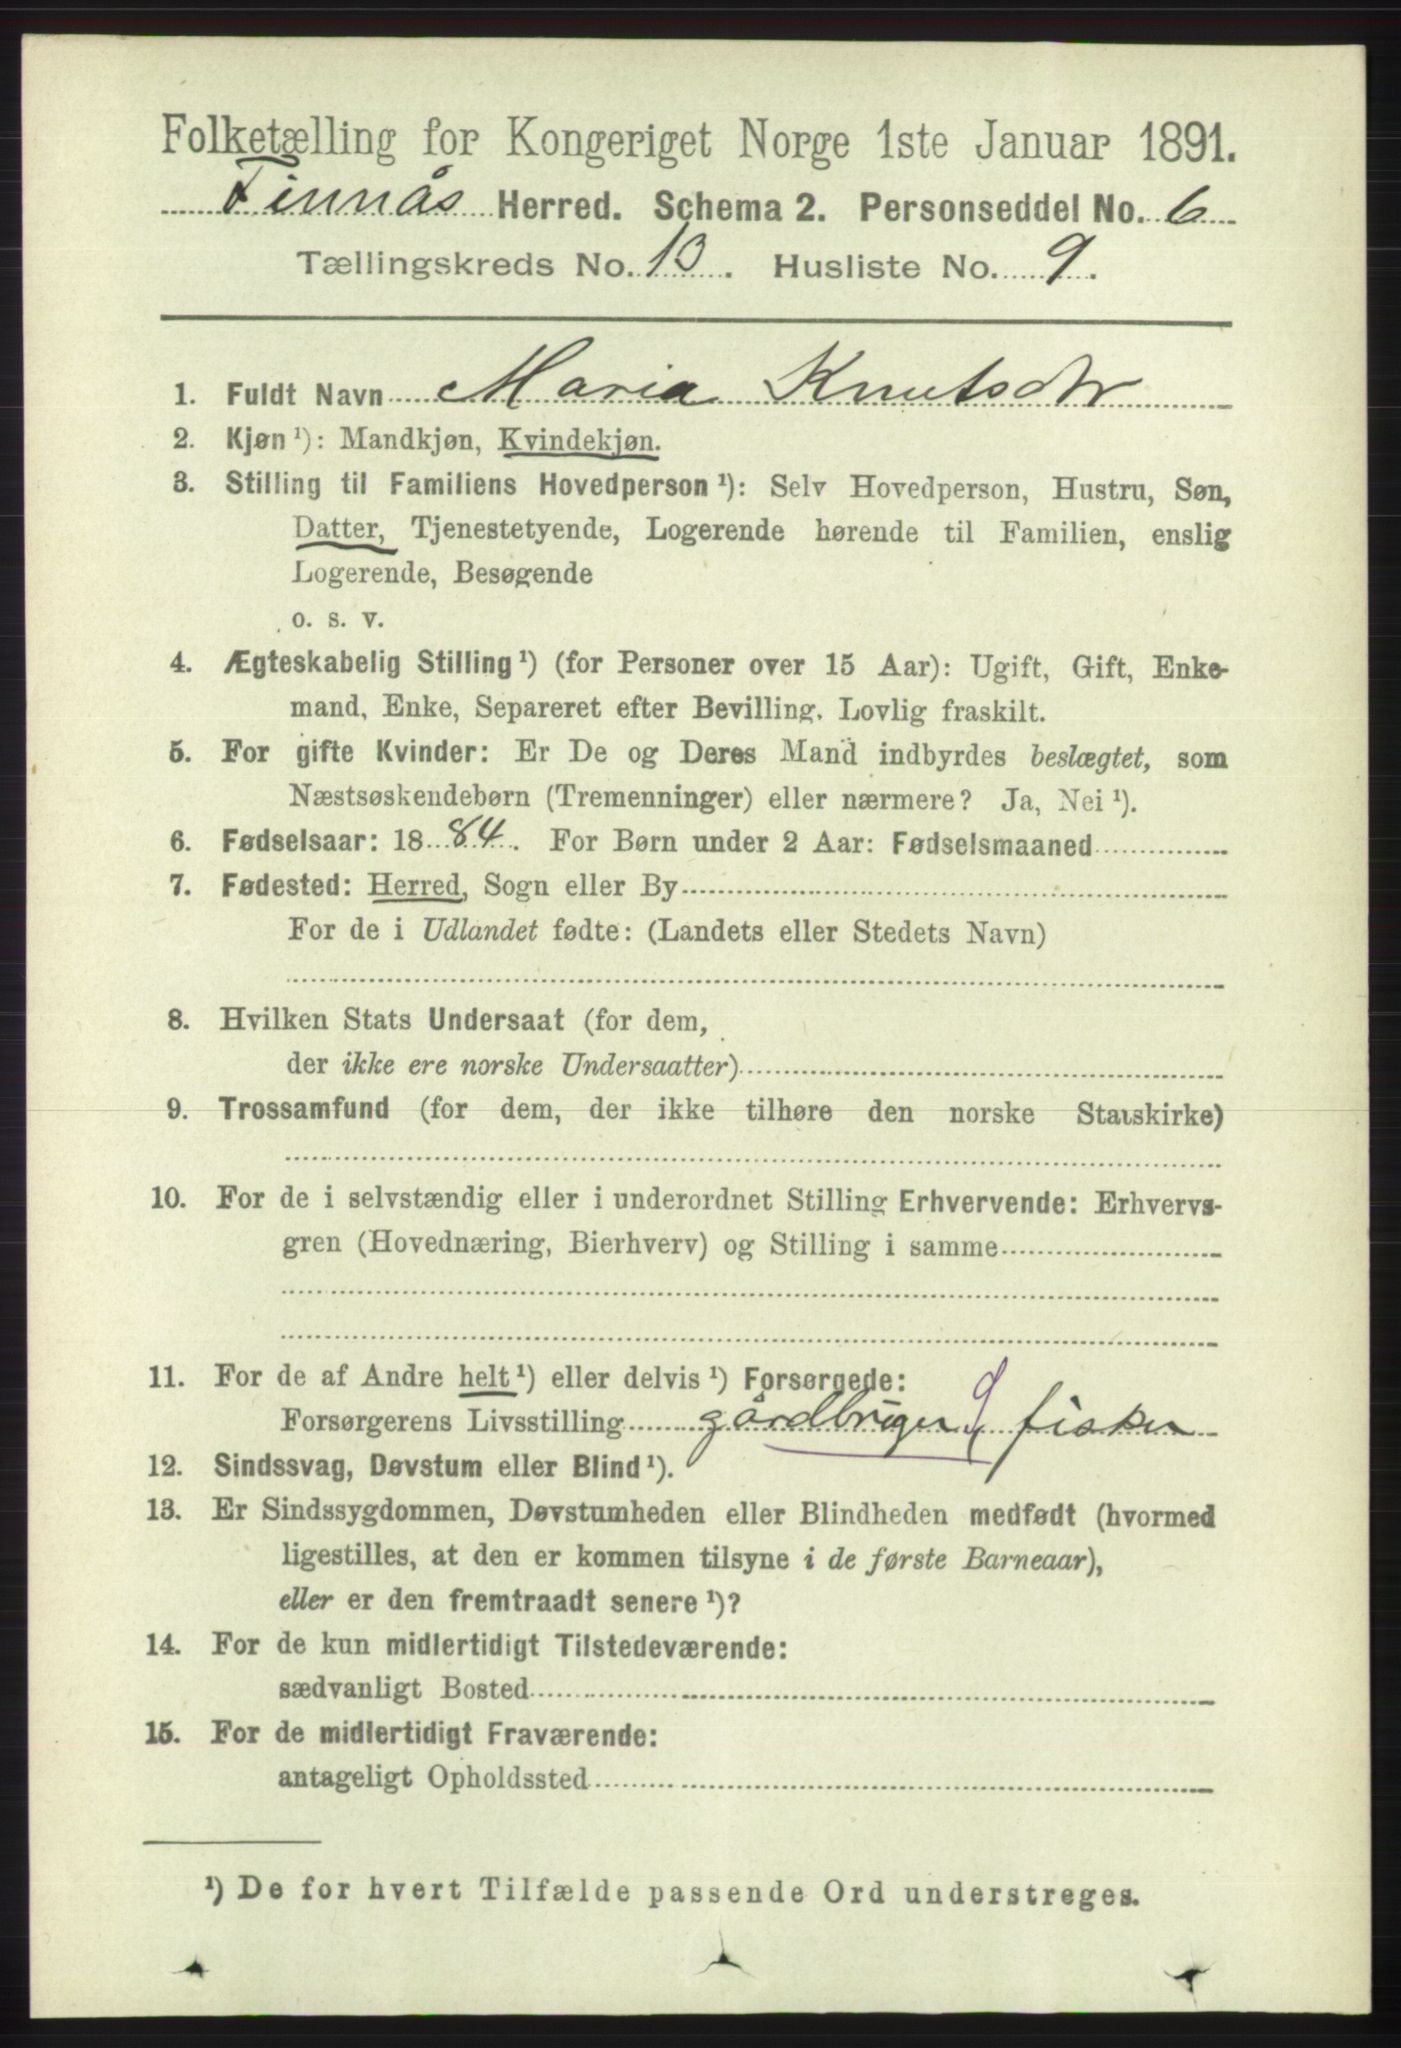 Folketælling for Kongeriget Norge 1ste Januar 1891.
Finnås Herred. Schema 2. Personseddel No. 6
Tællingskreds No. 13. Husliste No. 9.
1. Fuldt Navn Maria Knutsdtr
2. Kjøn ¹): Mandkjøn, Kvindekjøn.
3. Stilling til Familiens Hovedperson ¹): Selv Hovedperson, Hustru, Søn,
Datter, Tjenestetyende, Logerende hørende til Familien, enslig
Logerende, Besøgende
o. s. v.
4. Ægteskabelig Stilling ¹) (for Personer over 15 Aar): Ugift, Gift, Enke-
mand, Enke, Separeret efter Bevilling. Lovlig fraskilt.
5. For gifte Kvinder: Er De og Deres Mand indbyrdes beslægtet, som
Næstsøskendebørn (Tremenninger) eller nærmere? Ja, Nei ¹).
6. Fødselsaar: 1884. For Børn under 2 Aar: Fødselsmaaned
7. Fødested: Herred, Sogn eller By
For de i Udlandet fødte: (Landets eller Stedets Navn)
8. Hvilken Stats Undersaat (for dem,
der ikke ere norske Undersaatter)
9. Trossamfund (for dem, der ikke tilhøre den norske Statskirke)
10. For de i selvstændig eller i underordnet Stilling Erhvervende: Erhvervs-
gren (Hovednæring, Bierhverv) og Stilling i samme
11. For de af Andre helt ¹) eller delvis ¹) Forsørgede:
Forsørgerens Livsstilling gårdbruger & fisker
12. Sindssvag, Døvstum eller Blind ¹).
13. Er Sindssygdommen, Døvstumheden eller Blindheden medfødt (hvormed
ligestilles, at den er kommen tilsyne i de første Barneaar),
eller er den fremtraadt senere ¹)?
14. For de kun midlertidigt Tilstedeværende:
sædvanligt Bosted
15. For de midlertidigt Fraværende:
antageligt Opholdssted
¹) De for hvert Tilfælde passende Ord understreges.